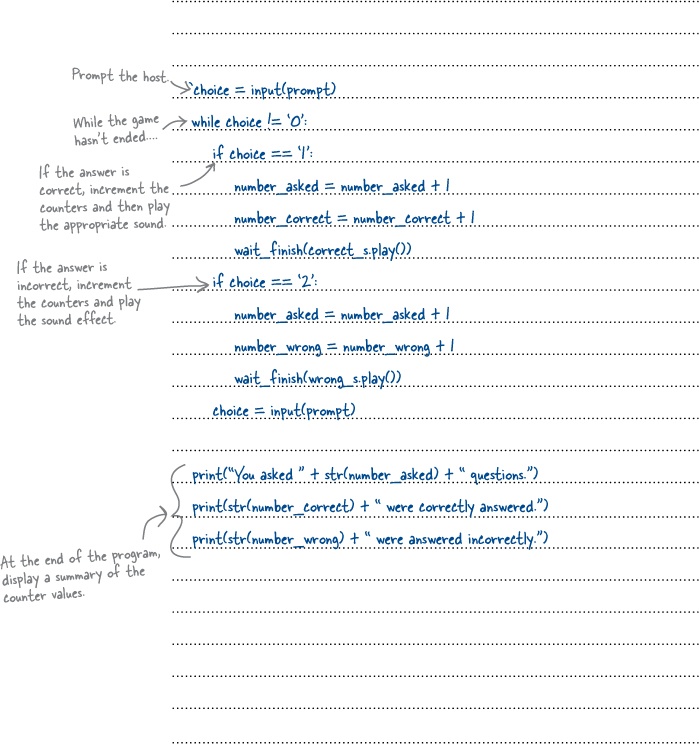 Prompt the host.
choice = input(prompt)
While the game
hasn't ended....
while choice != '0':
if choice == '1':
If the answer is
correct, increment the
counters and then play
the appropriate sound.
number_asked = number_asked + 1
number_correct = number_correct + 1
wait_finish(correct_s.play())
If the answer is
incorrect, increment
the counters and play
the sound effect.
if choice == '2':
number_asked = number_asked + 1
number_wrong = number_wrong + 1
wait_finish(wrong_s.play())
choice = input(prompt)
print("You asked " + str(number_asked) + " questions.")
print(str(number_correct) + " were correctly answered.")
print(str(number_wrong) + " were answered incorrectly.")
At the end of the program,
display a summary of the
counter values.